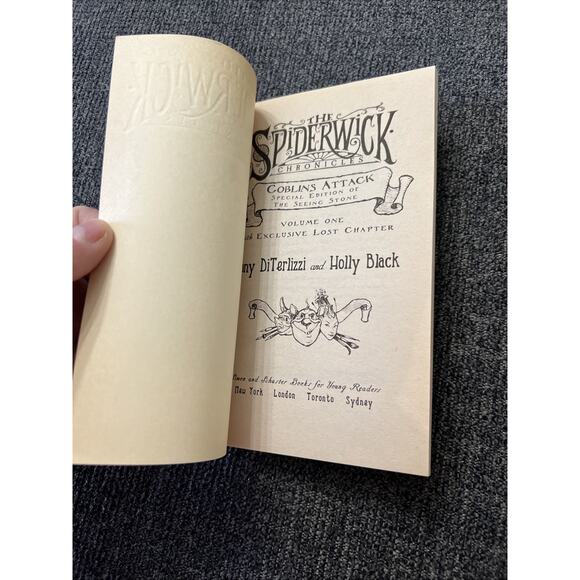 THE
SPIDERWICK
CHRONICLES
GOBLINS ATTACK
SPECIAL EDITION OF
THE SEEING STONE
VOLUME ONE
EXCLUSIVE LOST CHAPTER
DiTerlizzi and Holly Black
and Schuster Books for Young Readers
New York London Toronto Sydney